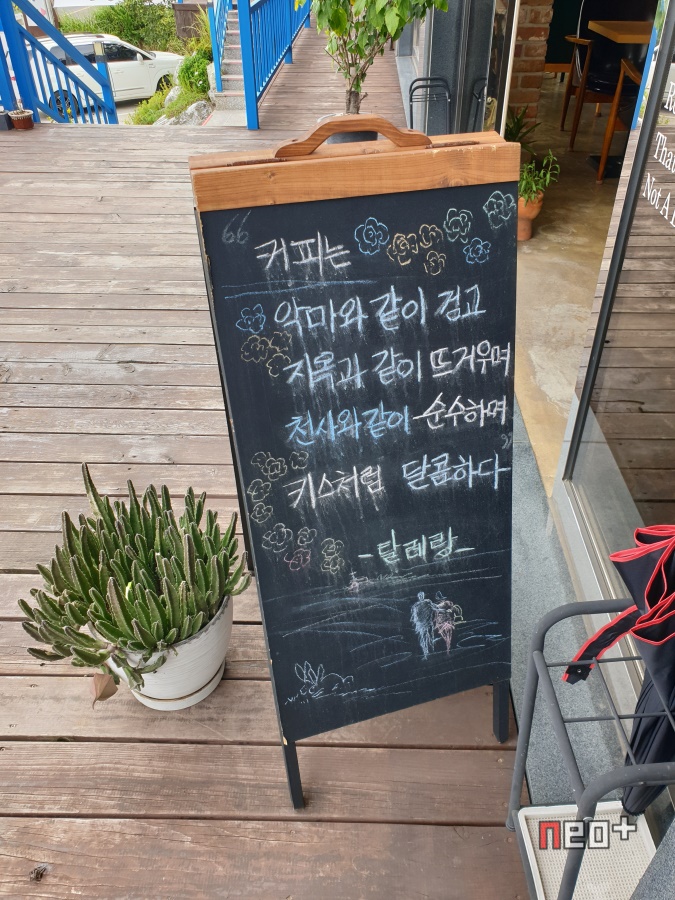 “ 커피는
악마와 같이 검고
지옥과 같이 뜨거우며
천사와같이 순수하며
키스처럼 달콤하다 ”
-탈레랑-
Tha
Not A
neo+